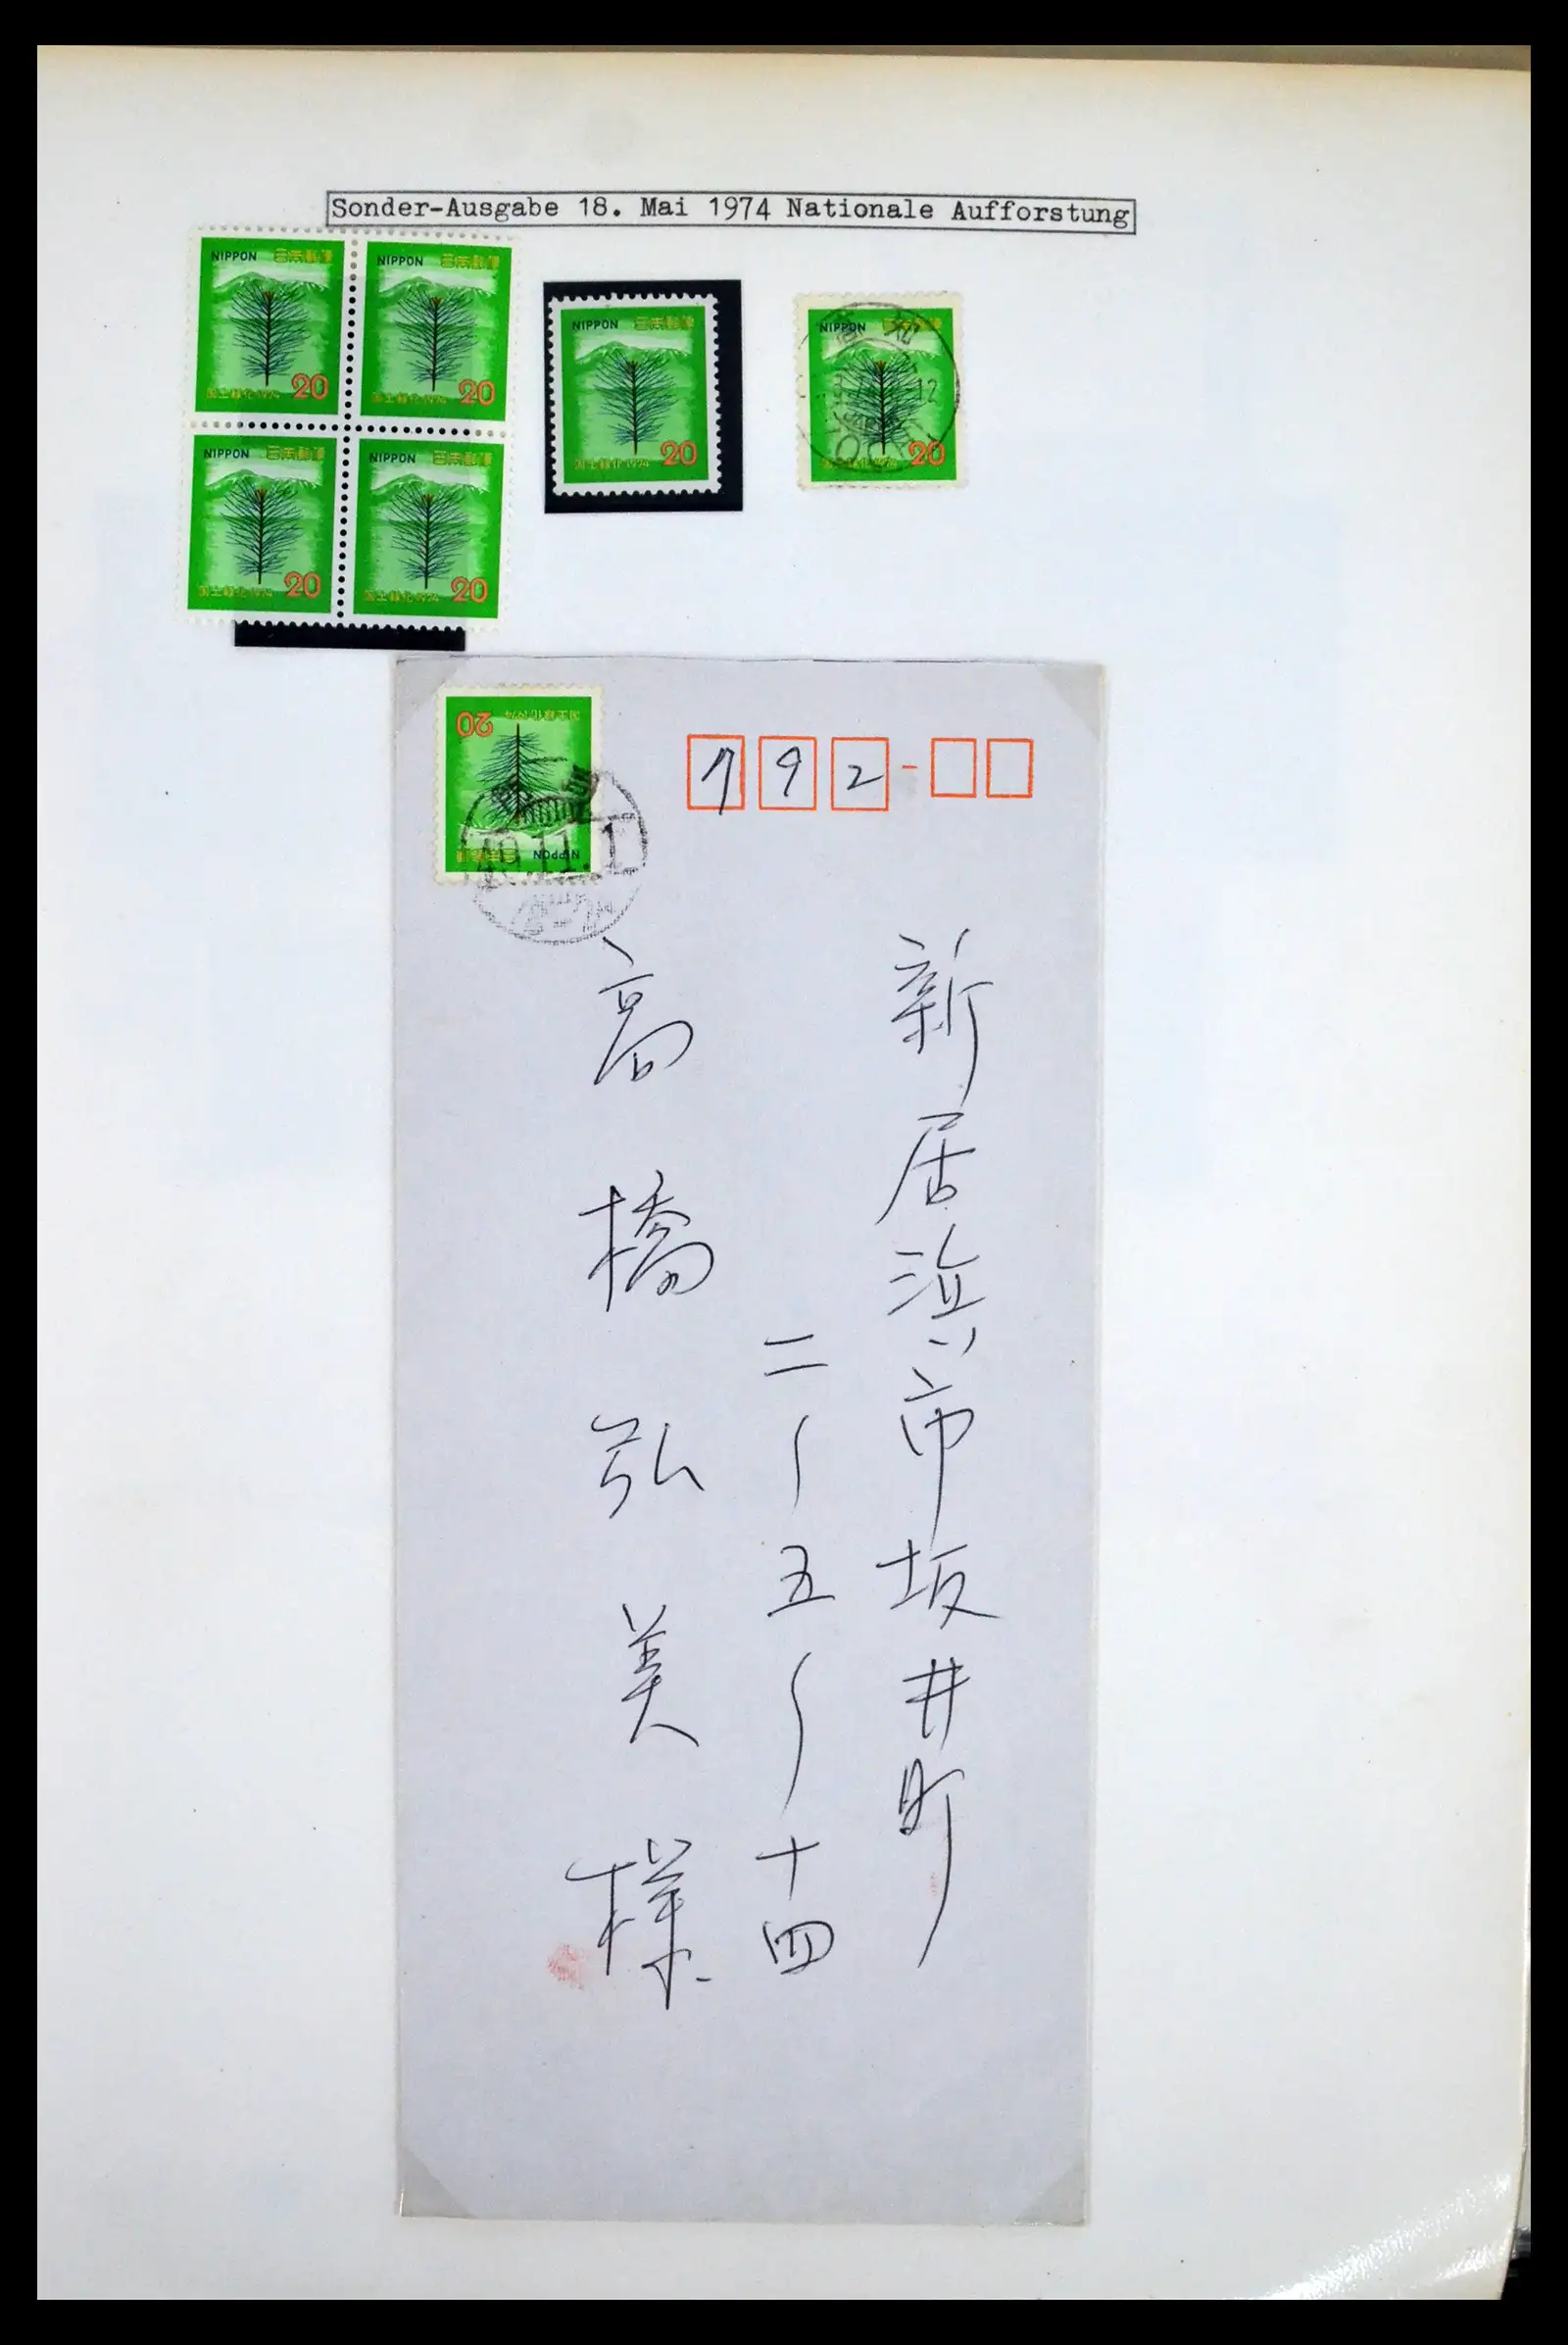 Sonder-Ausgabe 18. Mai 1974 Nationale Aufforstung
NIPPON 日本郵便
国土緑化1974 20
NIPPON 日本郵便
国土緑化1974 20
NIPPON 日本郵便
国土緑化1974 20
NIPPON 日本郵便
国土緑化1974 20
NIPPON 日本郵便
国土緑化1974 20
NIPPON 日本郵便
国土緑化1974 20
12
NIPPON 日本郵便
国土緑化1974 20
49.11.1
792-
新居浜市坂井町
二〜五〜十四
高橋弘美様